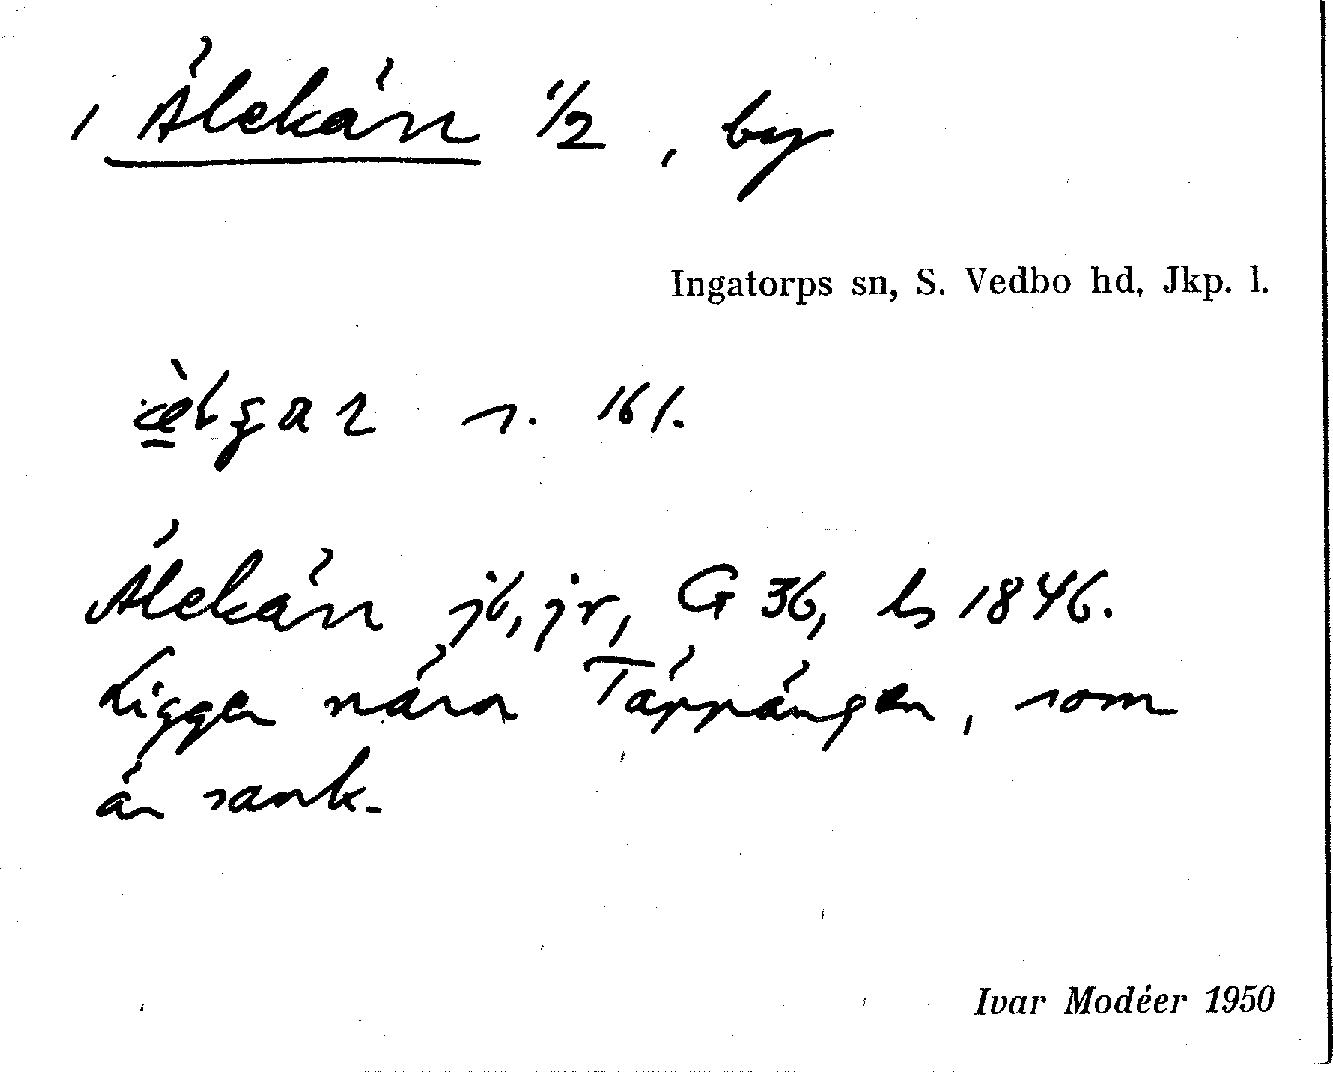 Älekärr 1/2, by
Ingatorps sn, S. Vedbo hd, Jkp. l.
s. 161.
Älekärr jb, jr, G 36, ls 1846.
Ligger nära Täppängen, som
är sank.
Ivar Modéer 1950